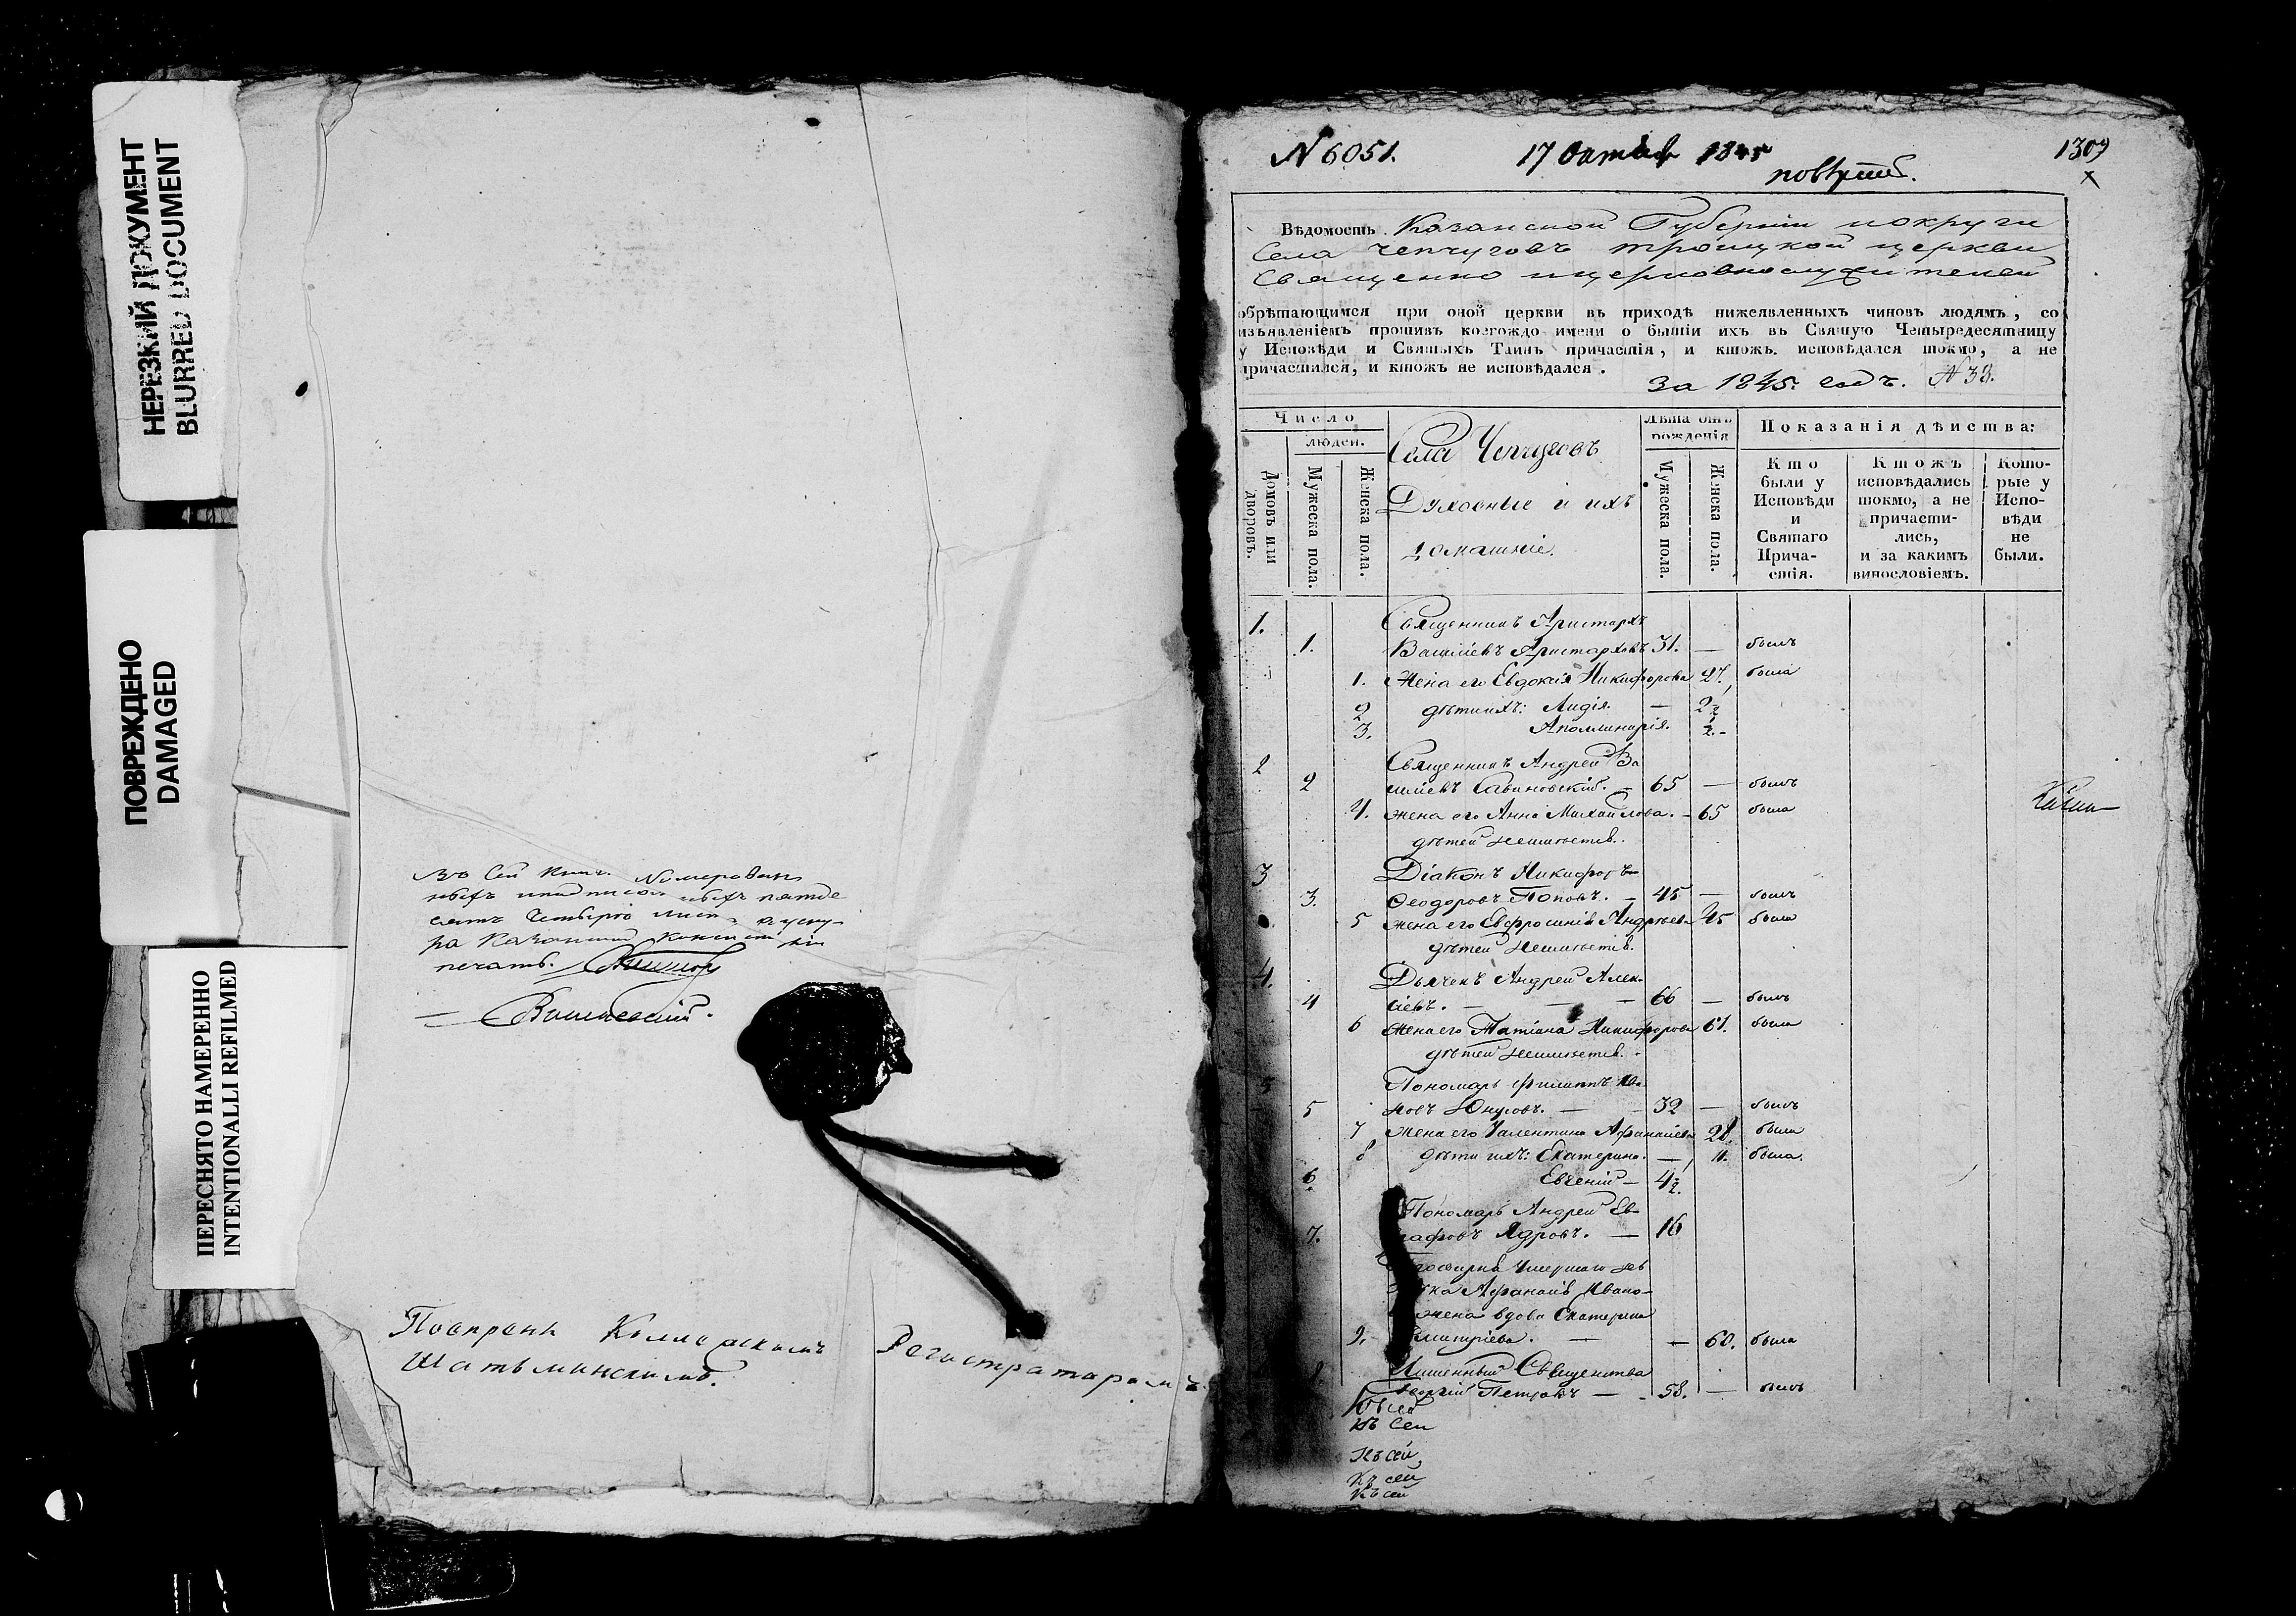 НЕРЕЗКИЙ ДОКУМЕНТ
BLURRED DOCUMENT
ПОВРЕЖДЕНО
DAMAGED
ПЕРЕСНЯТО НАМЕРЕННО
INTENTIONALLI REFILMED
Въ сей книгѣ Нумерован
ныхъ
сятъ Четыре лист
ра Казанской Консисторіи
печать.
Шатьминскимъ. Регистраторомъ
N 6051. 17 Октяб 1845 1309
повѣритъ.
Вѣдомость Казанской Губерніи иокруги
Села Чепчуговъ троицкой церкви
Священно ицерковнослужителей
обрѣтающимся при оной церкви въ приходѣ нижеявленныхъ чиновъ людямъ, со
изъявленіемъ противъ коегождо имени о бытіи ихъ въ Святую Четыредесятницу
у Исповѣди и Святыхъ Таинъ причастія, и ктожъ исповѣдался токмо, а не
причастился, и ктожъ не исповѣдался.
за 1845. годъ. N 38.
Число
людей.
Домовъ или дворовъ.
Мужеска пола.
Женска пола.
Села Чепчуговъ
Духовные и ихъ
домашніе.
Лѣта отъ рожденія
Мужеска пола.
Женска пола.
Показанія дѣйства:
Кто были у Исповѣди и Святаго Прича-стія.
Ктожъ исповѣдались токмо, а не причасти-лись, и за какимъ винословіемъ.
Кото-рые у Испо-вѣди не были.
1. Священникъ Аристархъ
1. Василіевъ Аристарховъ 31. — былъ
1. Жена его Евдокія Никифорова 27. была
2 дѣти ихъ: Лидія. — 2 1/2
3. Аполлинарія. 1/2.
2 Священникъ Андрей Ва
2 силіевъ Савиновскій. — 65 — былъ
4. жена его Анна Михайлова. — 65 была
дѣтей неимѣетъ.
3 Діаконъ Никифоръ
3. Ѳеодоровъ Поповъ. — 45 — былъ
5 жена его Евфросинія Андреева 45 была
дѣтей Неимѣетъ.
4. Дьячекъ Андрей Алек-
4 сіевъ. — — — 66 — былъ
6 жена его Татіана Никифорова 61. была
дѣтей неимѣетъ.
5 Пономарь Филиппъ Ива-
5 новъ Юнусовъ. — 32 — былъ
7 Жена его Валентина Афанасіева 28. была
8 дѣти ихъ: Екатерина. — 11. была.
6. Евгеній — 4 1/2.
Пономарь Андрей Ев-
7. графовъ Ядровъ. — 16
Афанасія Ивано-
жена вдова Екатерина
9. Димитріева. — — 60. была
8 Лишенный Священства
Петровъ — 58. — былъ
Къ сей
Къ сей
Къ сей
Къ сей